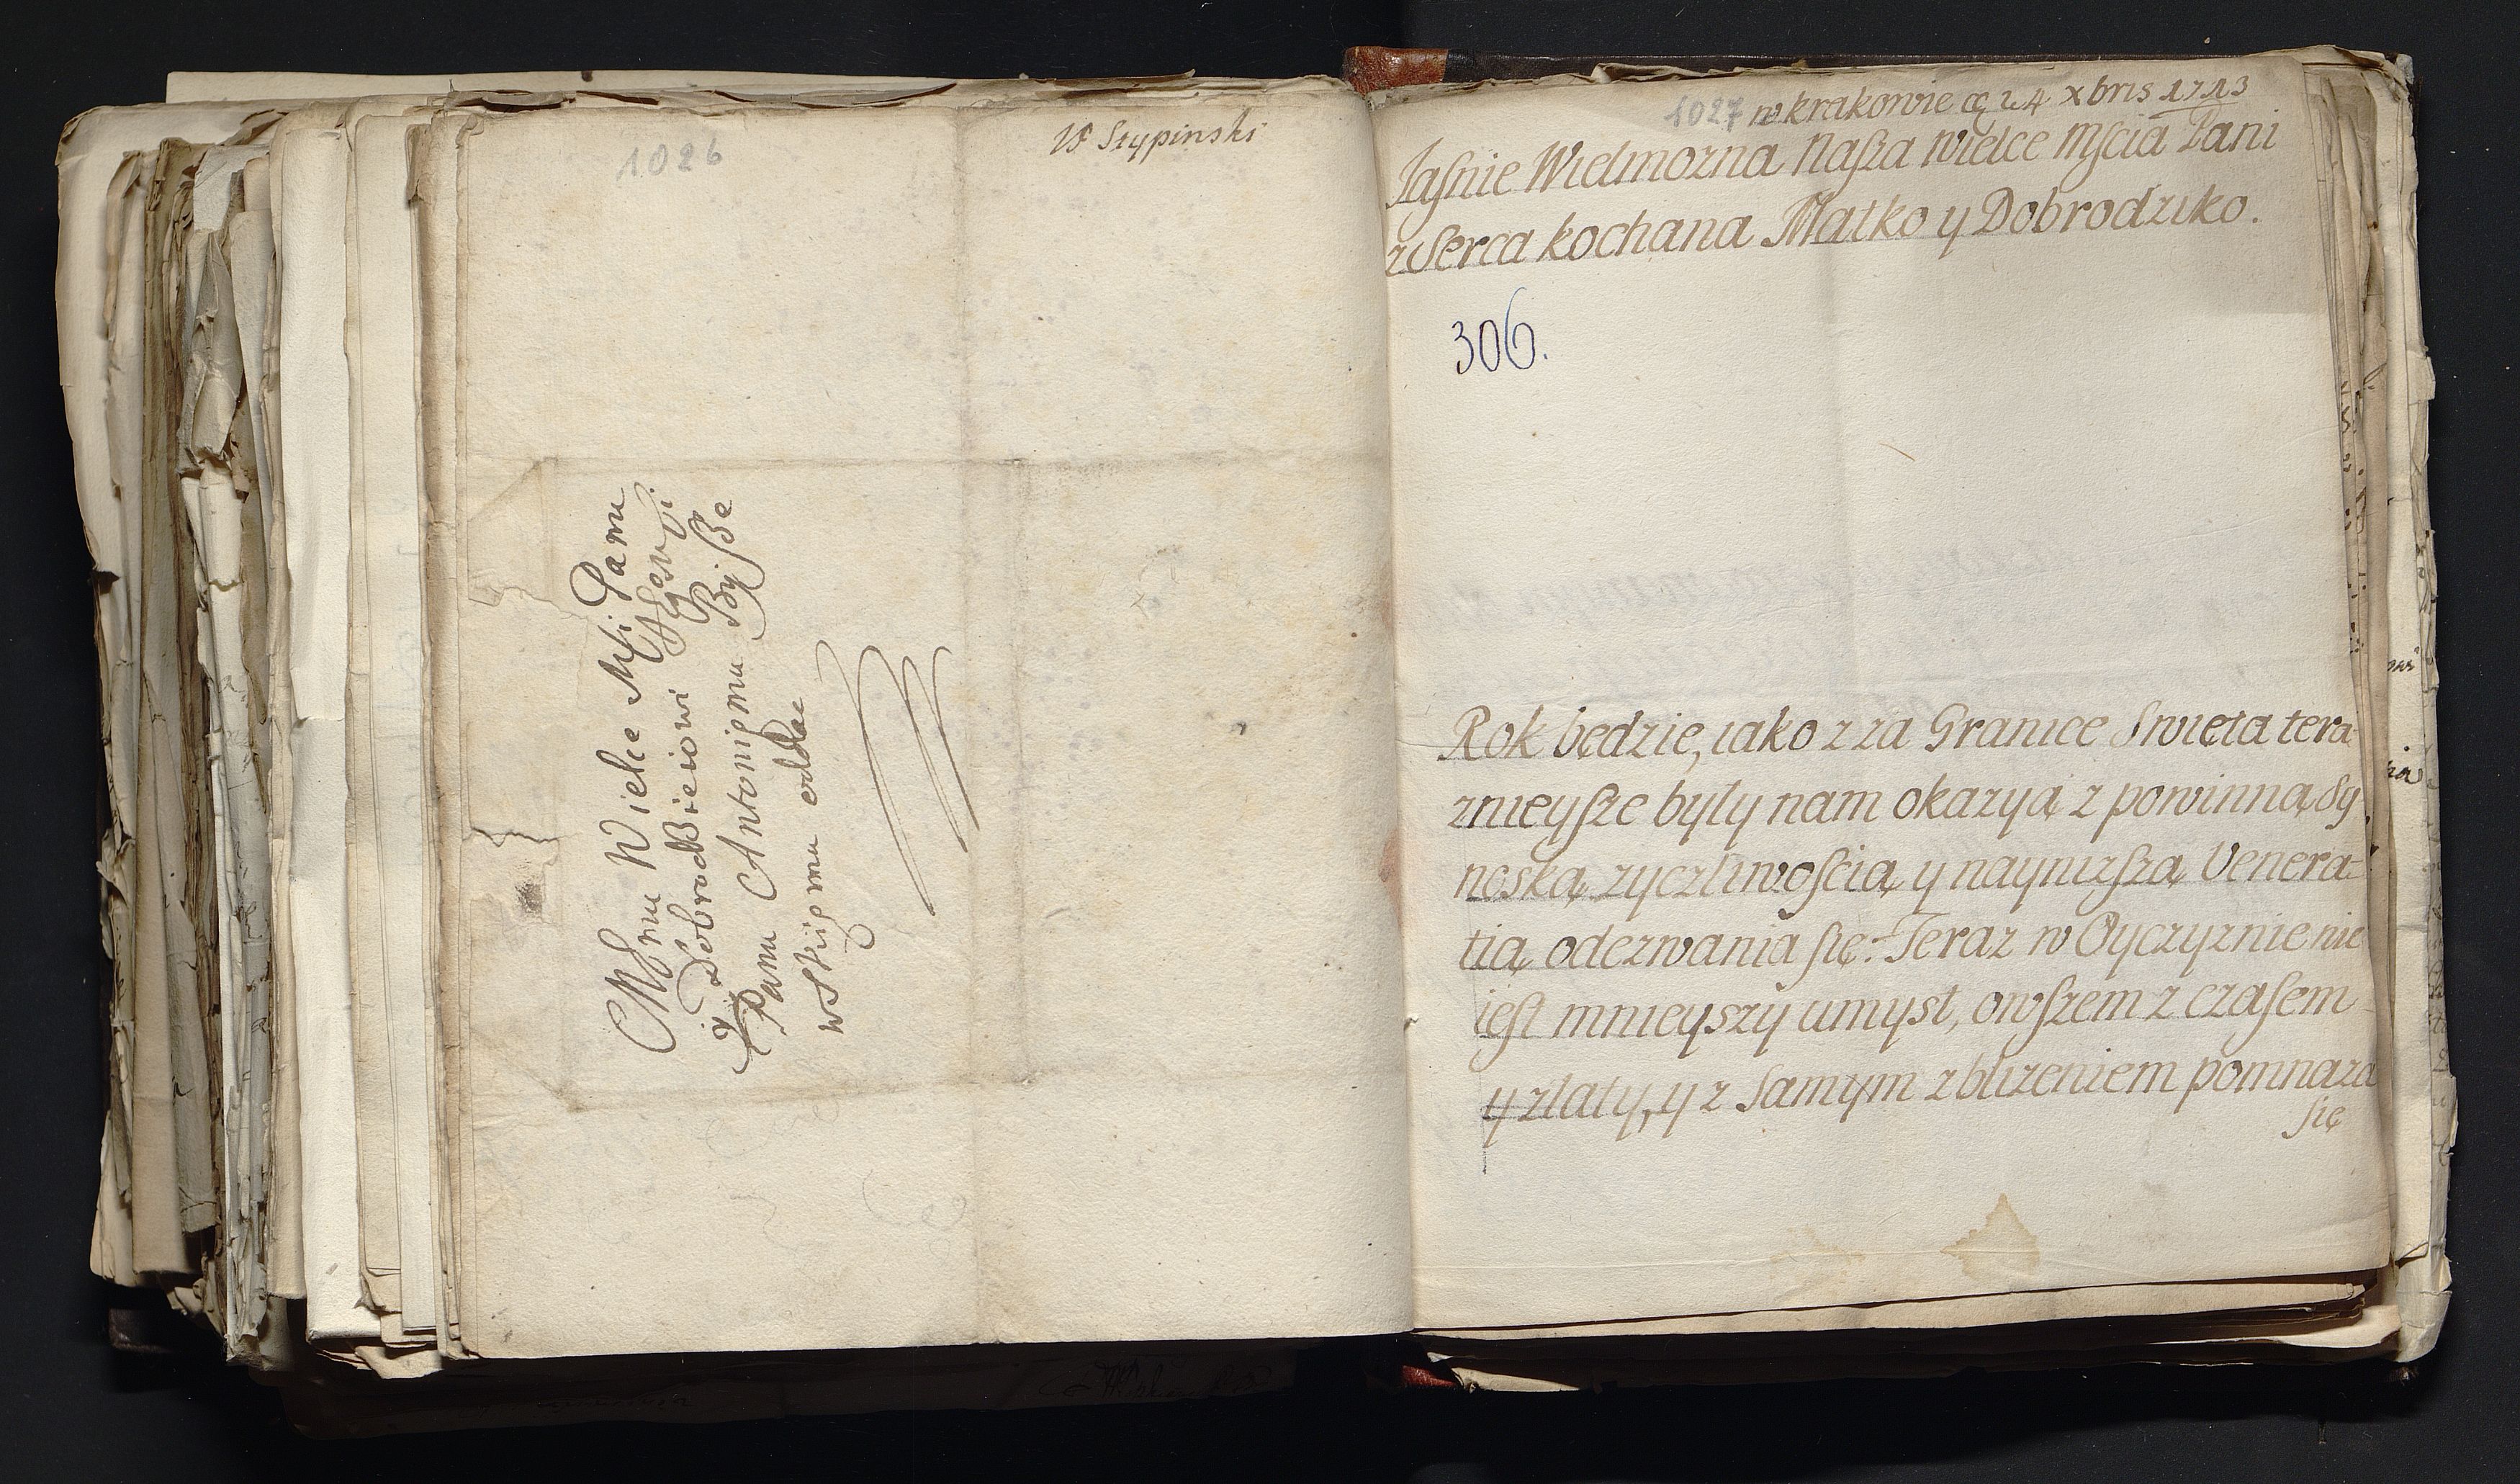 1026
W Stypinski
Memu Wielce Mści Panu
y Dobrodzieiowi
Panu Antoniemu
wskiemu oddac
1027 w krakowie 24 xbris 1713
Jaſnie Wielmozna Naſza wielce Mſcia Pani
z Serca kochana Matko y Dobrodziko.
306.
Rok będzie, iako z za Granice Swięta tera
znieyſze były nam okazyą z powinną Sy
noską zyczliwoſcią y nayniżſzą Venera-
tią odezwania ſię: Teraz w Oyczyznie nie
ieſt mnieyszy umysł, owſzem z czaſem
y zlaty, y z Samym zblizeniem pomnaza
ſię